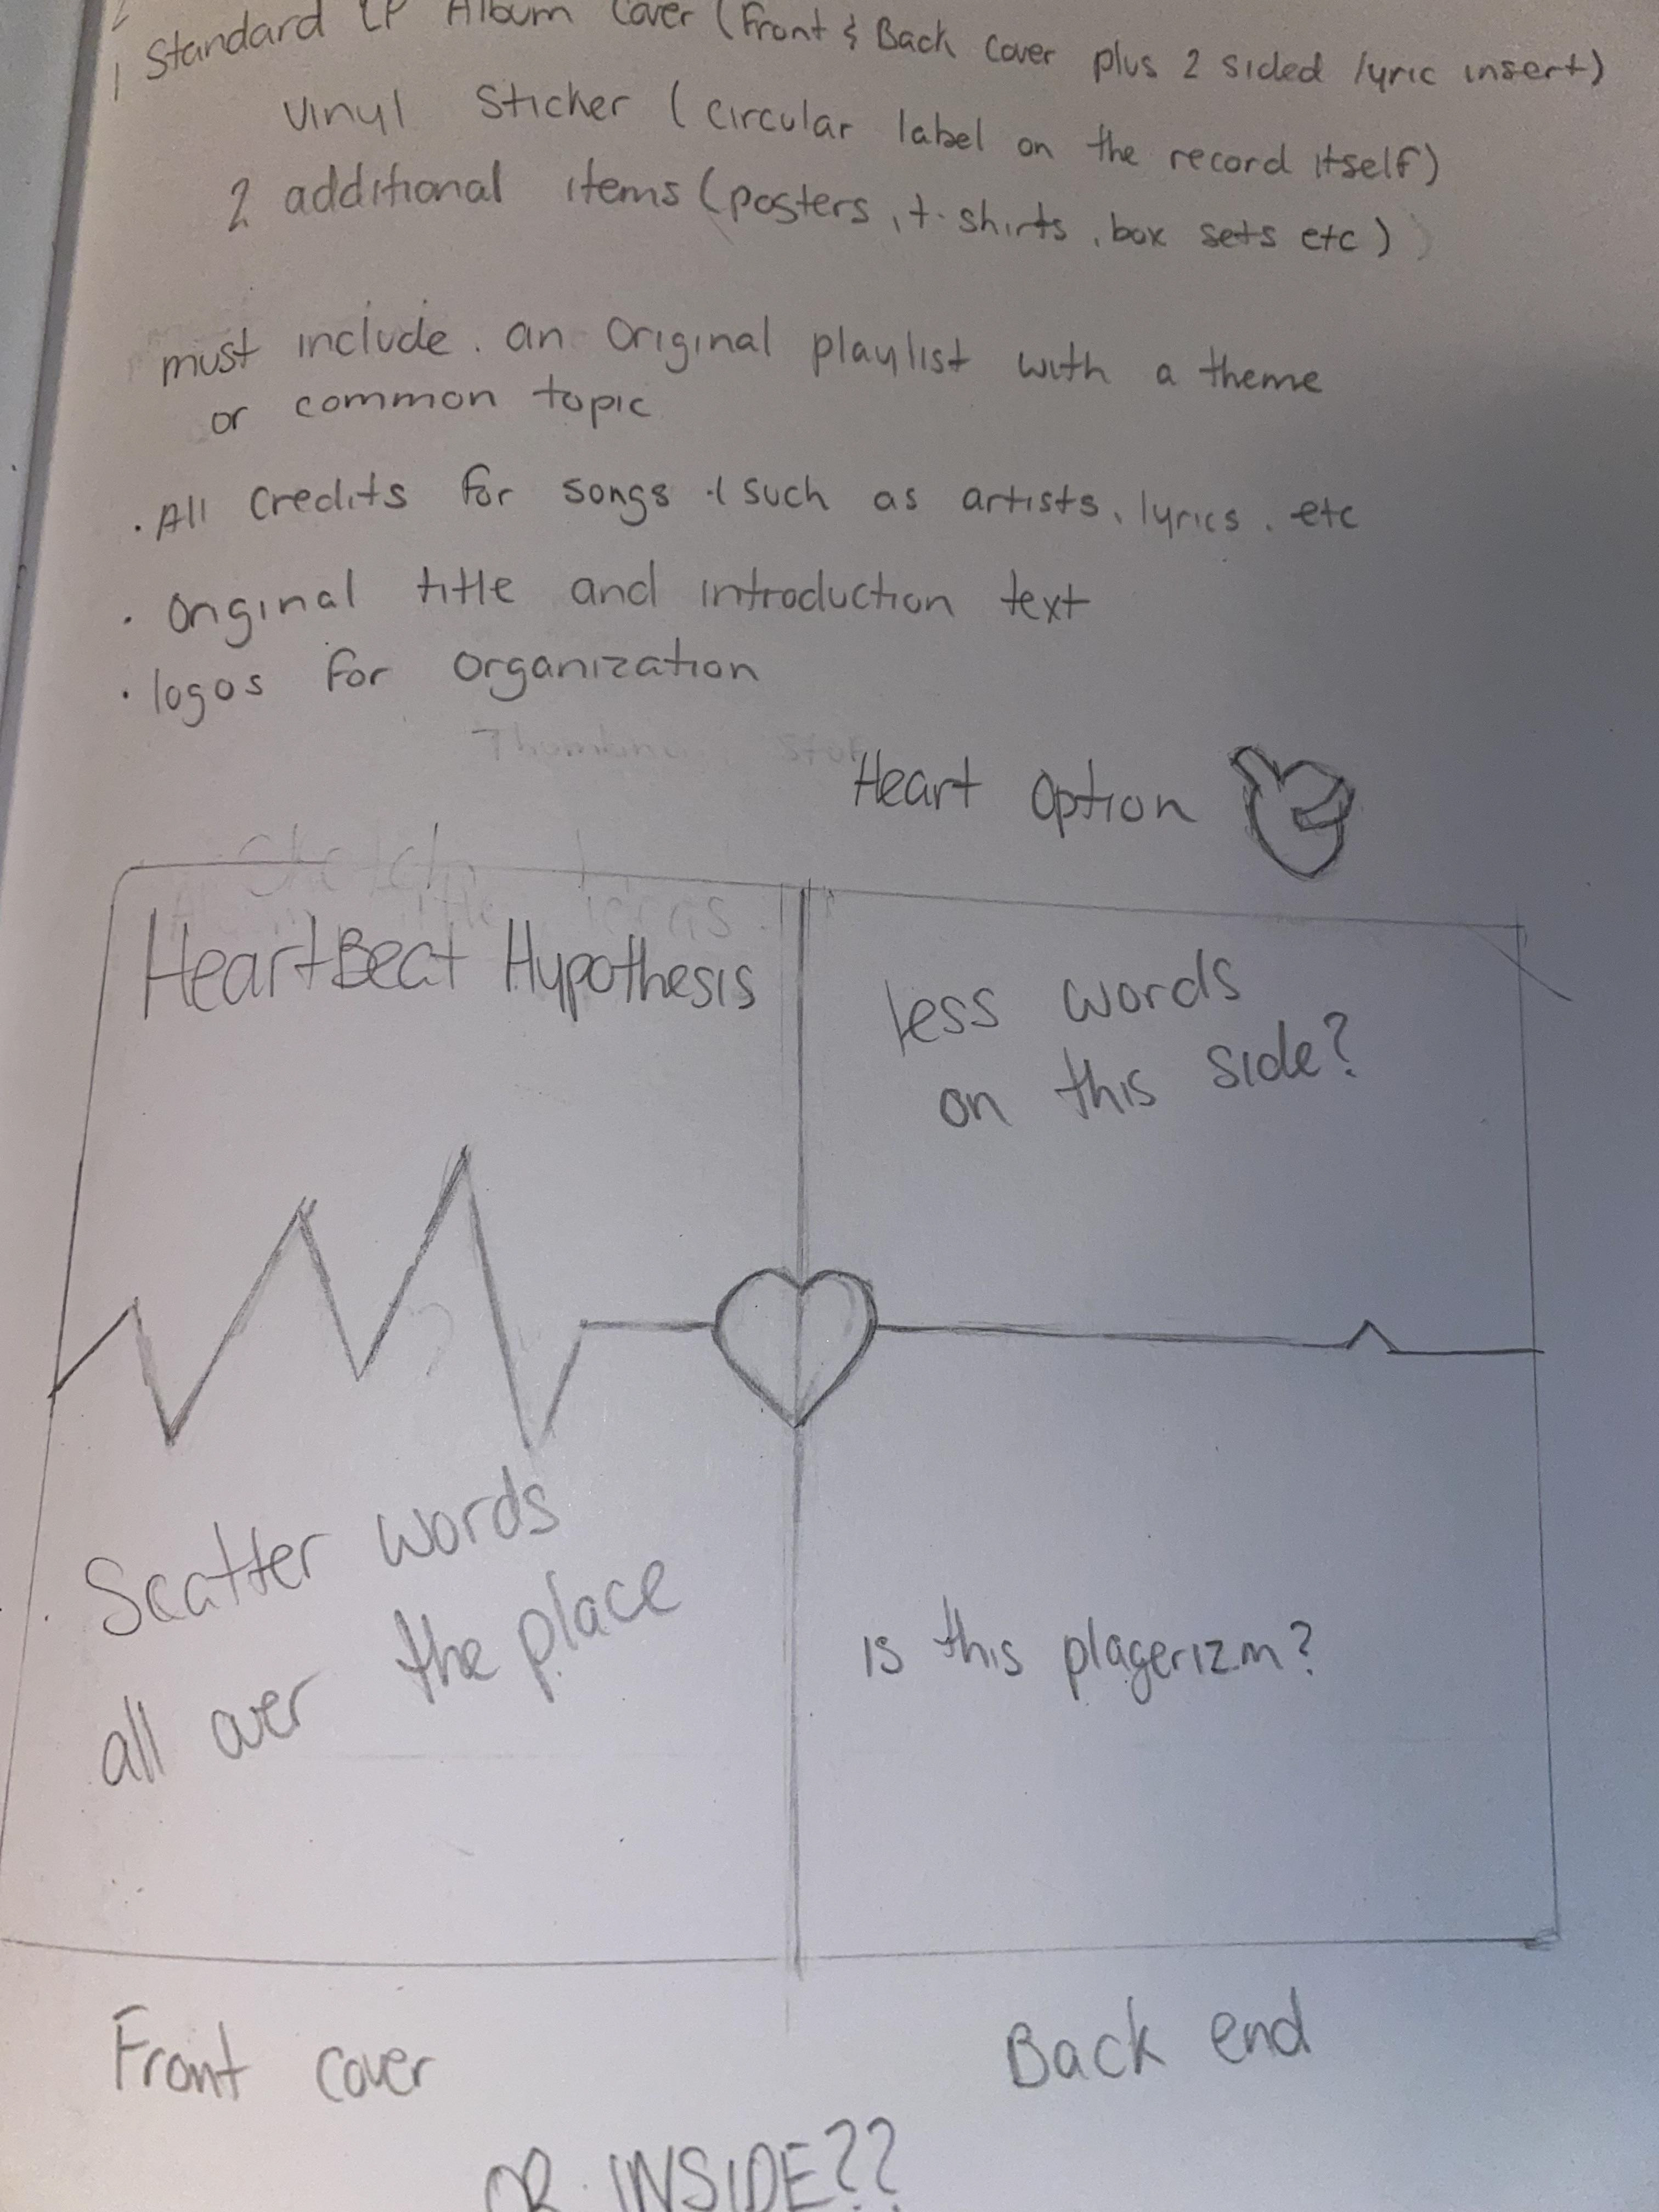 1 Standard LP Album Cover (Front & Back cover plus 2 sided lyric insert)
Vinyl Sticker (circular label on the record itself)
2 additional items (posters, t-shirts, box sets etc)
must include. an Original playlist with a theme
or common topic
. All credits for songs (such as artists, lyrics, etc
. Original title and introduction text
. logos for organization
Heart Option
Sketch
HeartBeat Hypothesis
less words
on this side?
Scatter words
all over the place
is this plagerizm?
Front cover
Back end
OR INSIDE??